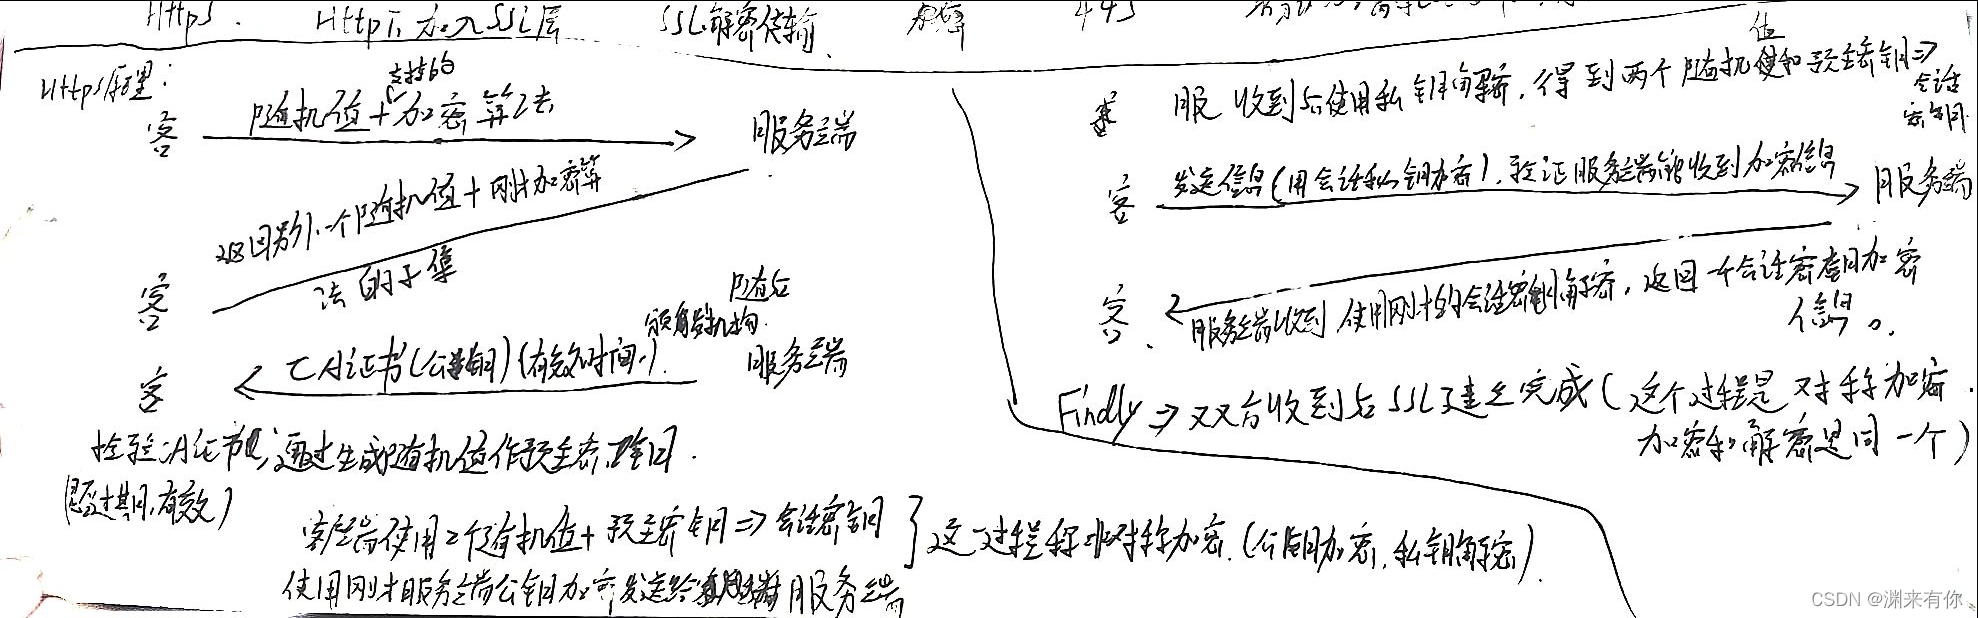 Https. Http下加入SSL层 SSL加密传输 443
Https原理:
支持的
客 随机值+加密算法 服务端
返回另外一个随机值+刚才加密算
客 法的子集
随后
服务端
客 CA证书(公钥)(有效时间.) 颁发机构.
检验CA证书, 通过生成随机值作预主密钥.
(是否过期,有效)
客户端使用2个随机值+预主密钥⇒会话密钥
使用刚才服务端公钥加密发送给服务端
}这一过程称非对称加密.(公钥加密,私钥解密).
服 收到后使用私钥解密,得到两个随机值和预主密钥⇒
会话
密钥
发送信息(用会话私钥加密),验证服务端能收到加密信息
客 服务端
客. 服务端收到 使用刚才的会话密钥解密,返回一个会话密钥加密
信息。
Findly ⇒ 双方收到后SSL建立完成(这个过程是对称加密.
加密和解密是同一个)
CSDN @渊来有你